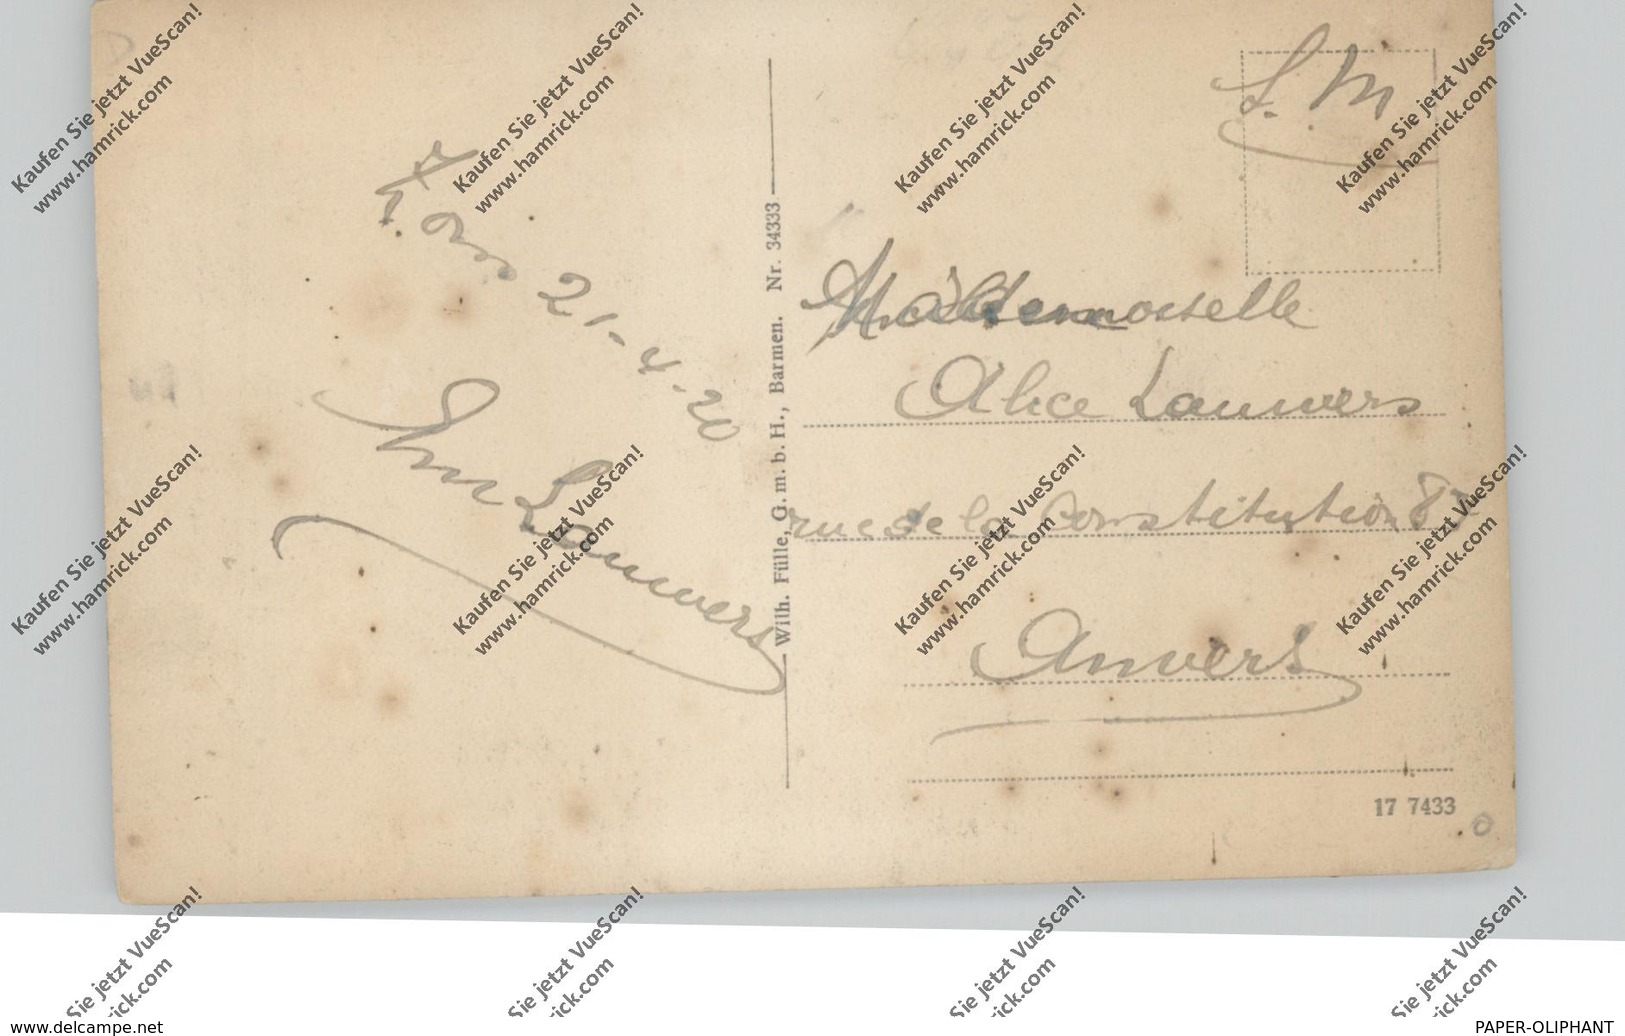 S. M
21-4-20
Lauwers
Wilh. Fülle, G. m. b. H., Barmen. Nr. 34333
Mademoiselle
Alice Lauwers
rue de la Constitution 87
Anvers
17 7433
Kaufen Sie jetzt VueScan!
www.hamrick.com
Kaufen Sie jetzt VueScan!
www.hamrick.com
Kaufen Sie jetzt VueScan!
www.hamrick.com
Kaufen Sie jetzt VueScan!
www.hamrick.com
Kaufen Sie jetzt VueScan!
www.hamrick.com
Kaufen Sie jetzt VueScan!
www.hamrick.com
Kaufen Sie jetzt VueScan!
www.hamrick.com
Kaufen Sie jetzt VueScan!
www.hamrick.com
Sie jetzt VueScan!
rick.com
Sie jetzt VueScan!
rick.com
Sie jetzt VueScan!
rick.com
Sie jetzt VueScan!
rick.com
www.delcampe.net
PAPER-OLIPHANT